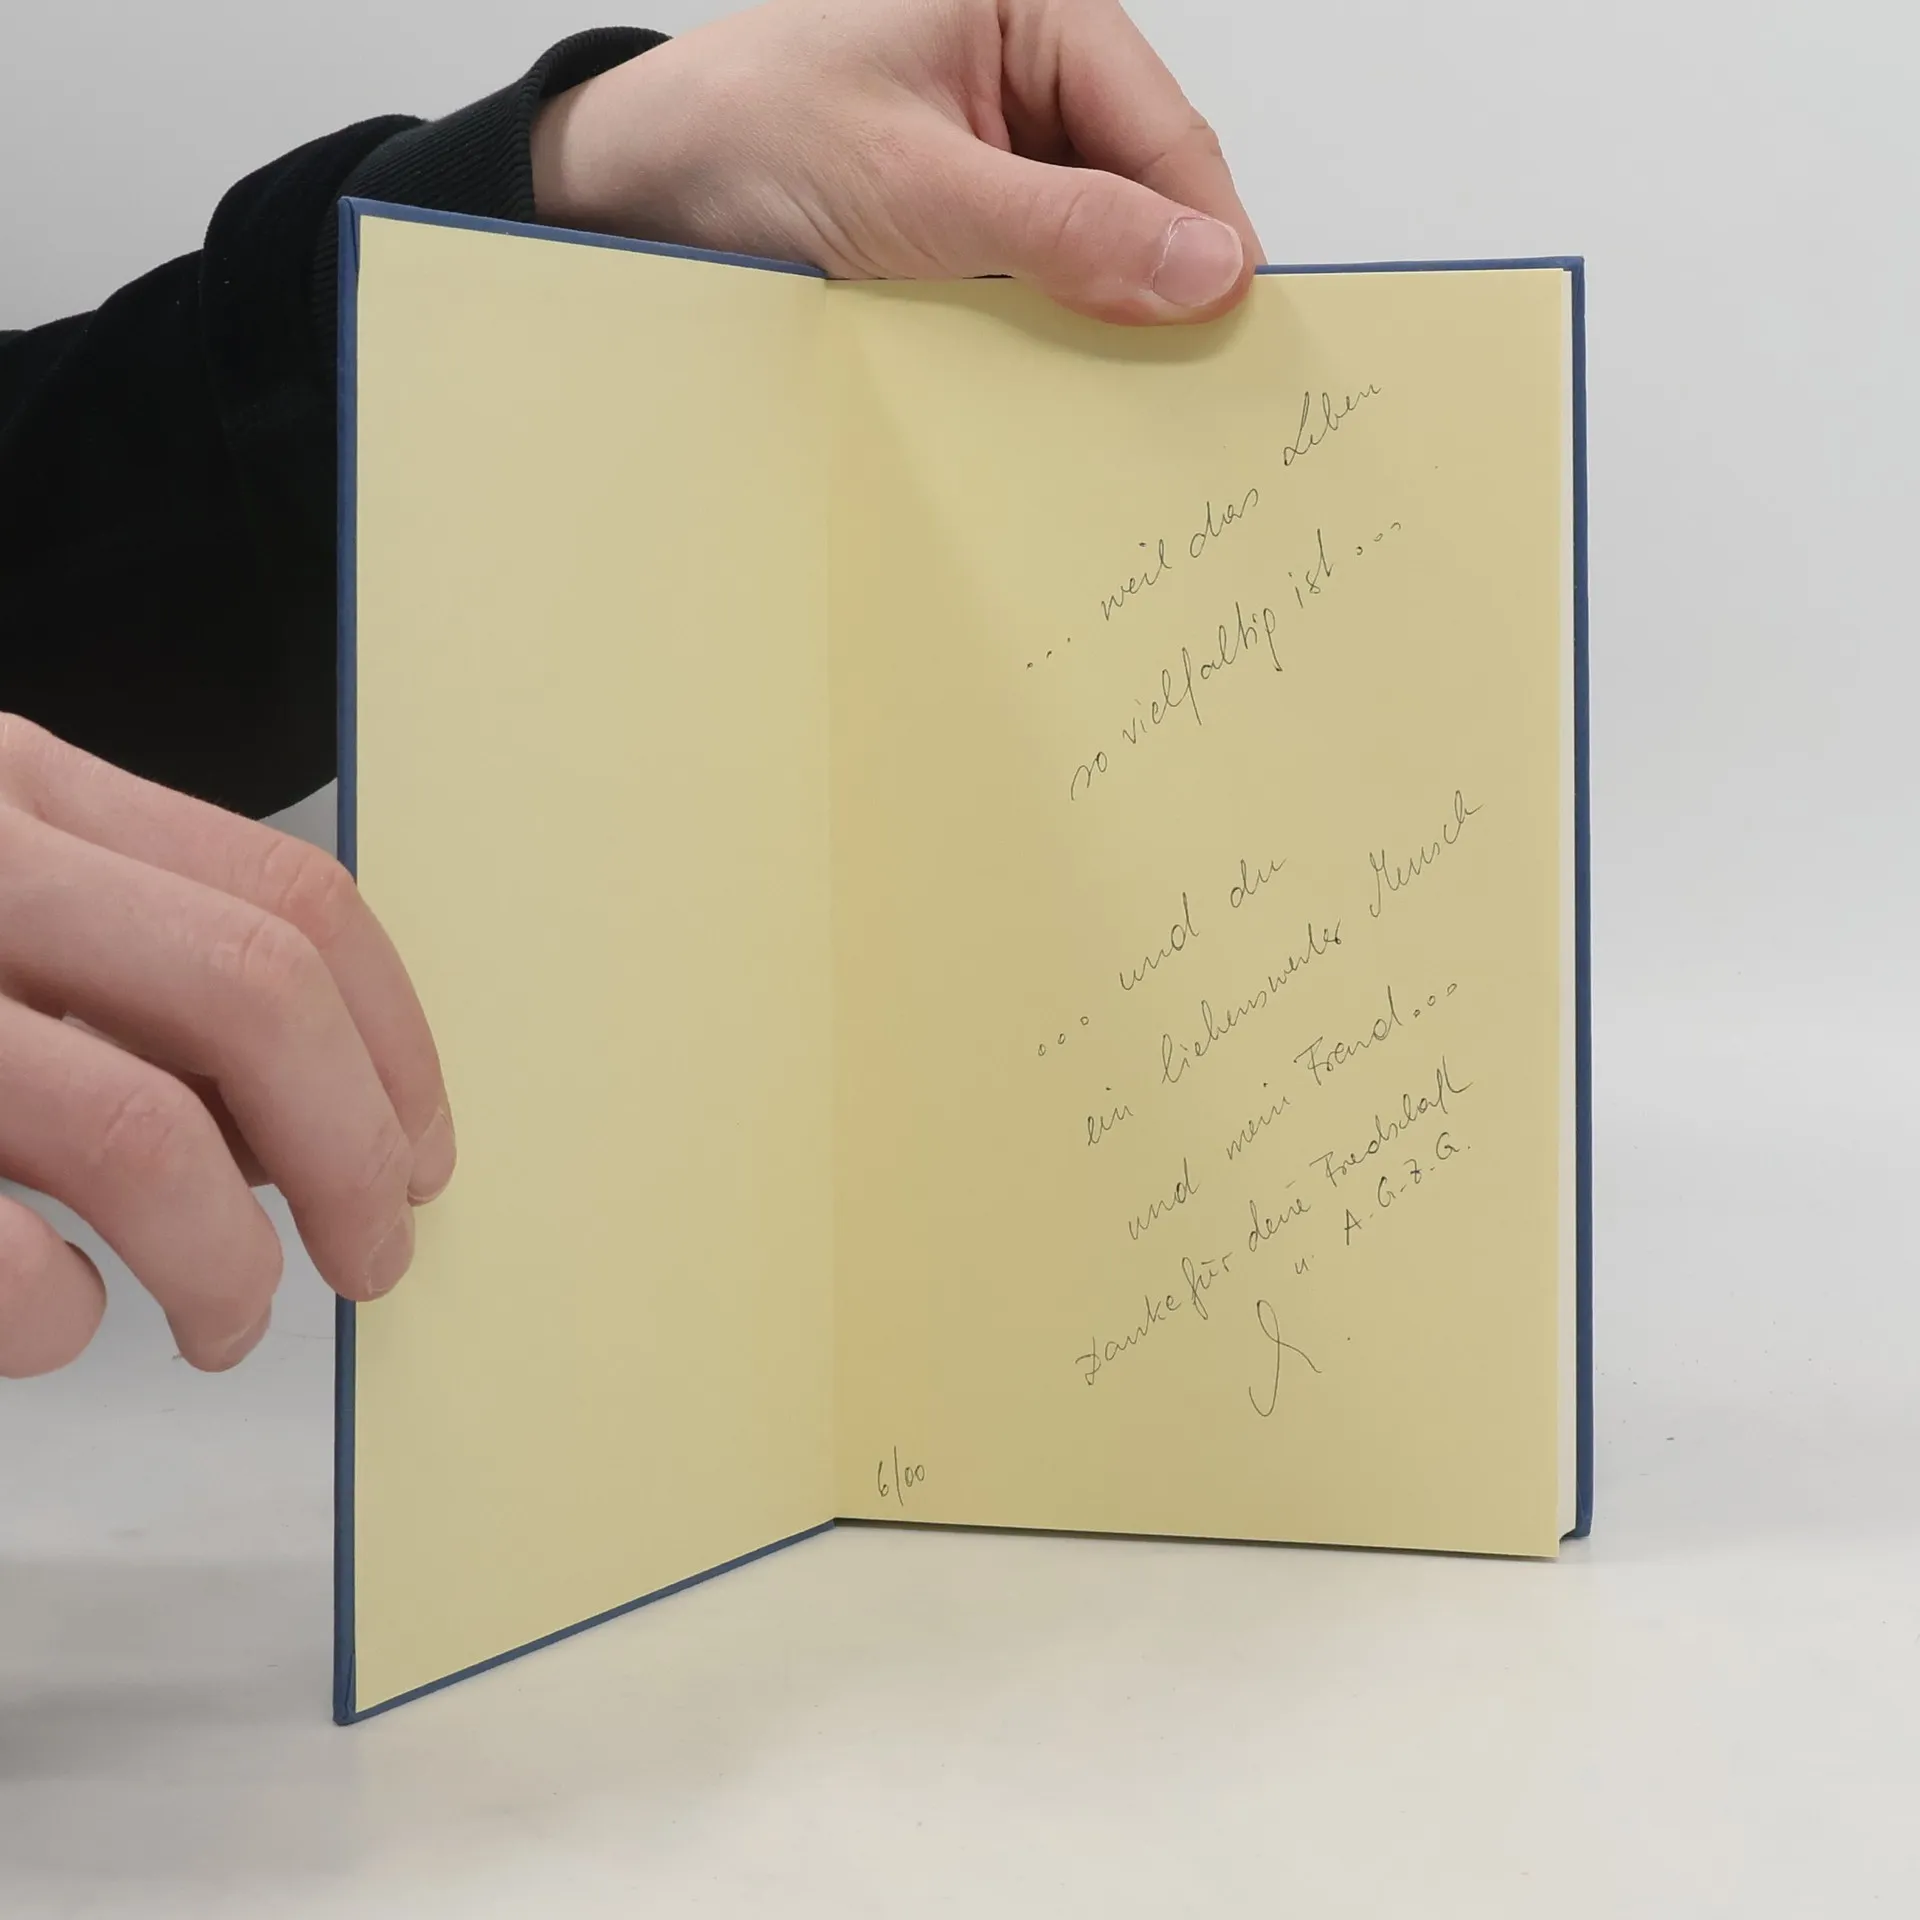 ... weil das Leben
so vielfaltig ist ...
... und du
ein liebenswerter Mensch
und mein Freund ...
Danke für deine Fredschaft
u. A.G.Z.G.
6/00